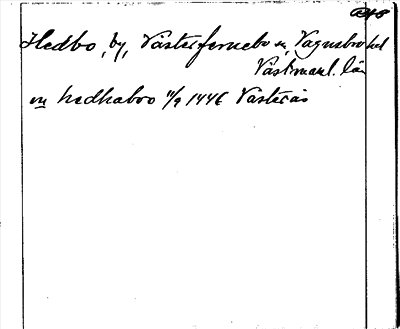 Hedbo, by, Västerfernebo sn, Vagnsbro hd
Västmanl. län
hedhabro 11/9 1446 Västerås